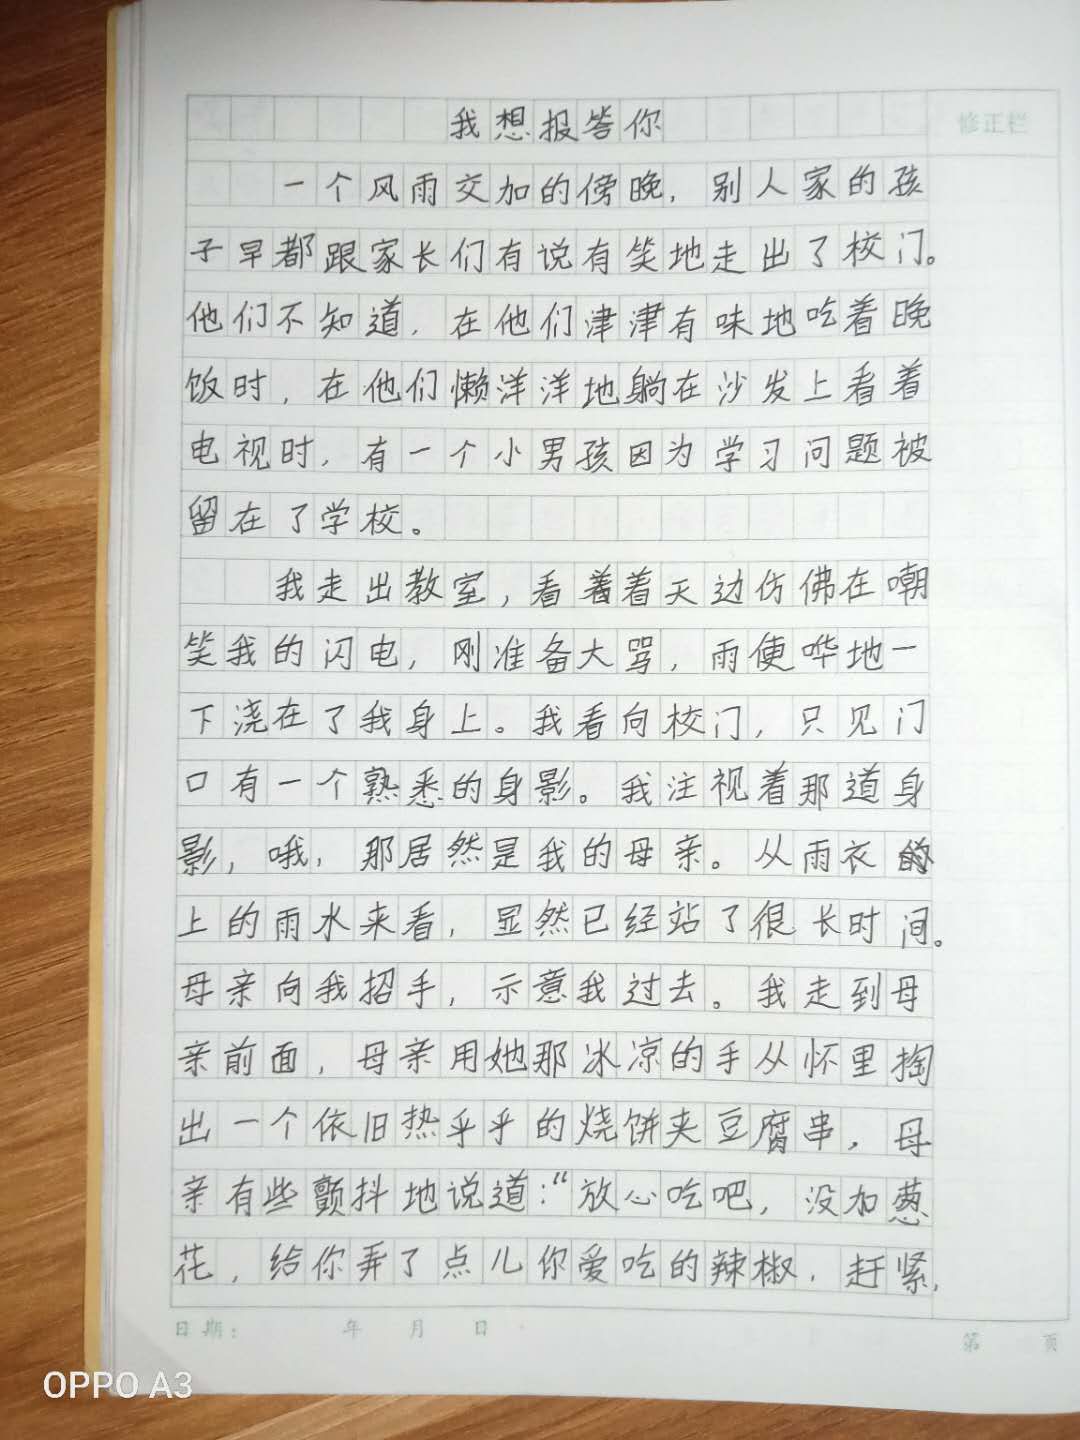 我想报答你
修正栏
一个风雨交加的傍晚，别人家的孩
子早都跟家长们有说有笑地走出了校门。
他们不知道，在他们津津有味地吃着晚
饭时，在他们懒洋洋地躺在沙发上看着
电视时，有一个小男孩因为学习问题被
留在了学校。
我走出教室，看着着天边仿佛在嘲
笑我的闪电，刚准备大骂，雨便哗地一
下浇在了我身上。我看向校门，只见门
口有一个熟悉的身影。我注视着那道身
影，哦，那居然是我的母亲。从雨衣
上的雨水来看，显然已经站了很长时间。
母亲向我招手，示意我过去。我走到母
亲前面，母亲用她那冰凉的手从怀里掏
出一个依旧热乎乎的烧饼夹豆腐串，母
亲有些颤抖地说道：“放心吃吧，没加葱
花，给你弄了点儿你爱吃的辣椒，赶紧，
日期： 年 月 日
第 页
OPPO A3